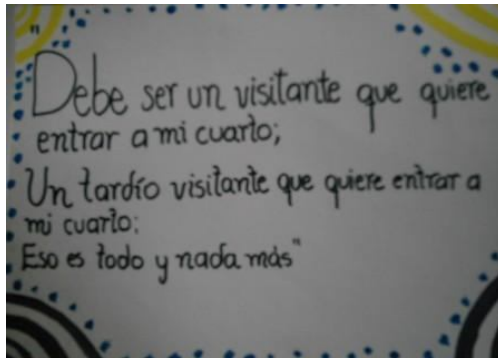 "
Debe ser un visitante que quiere
entrar a mi cuarto;
Un tardío visitante que quiere entrar a
mi cuarto:
Eso es todo y nada más"